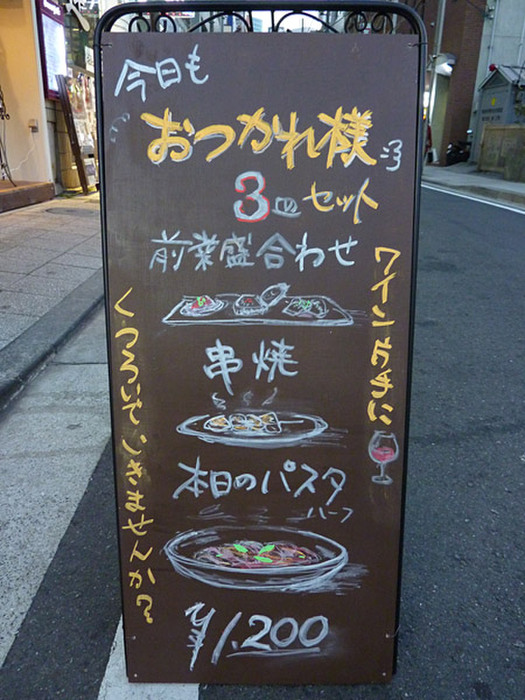 今日も
おつかれ様
3皿セット
前菜盛合わせ
串焼
本日のパスタ
ハーフ
¥1,200
ワイン片手に
くつろいでいきませんか?